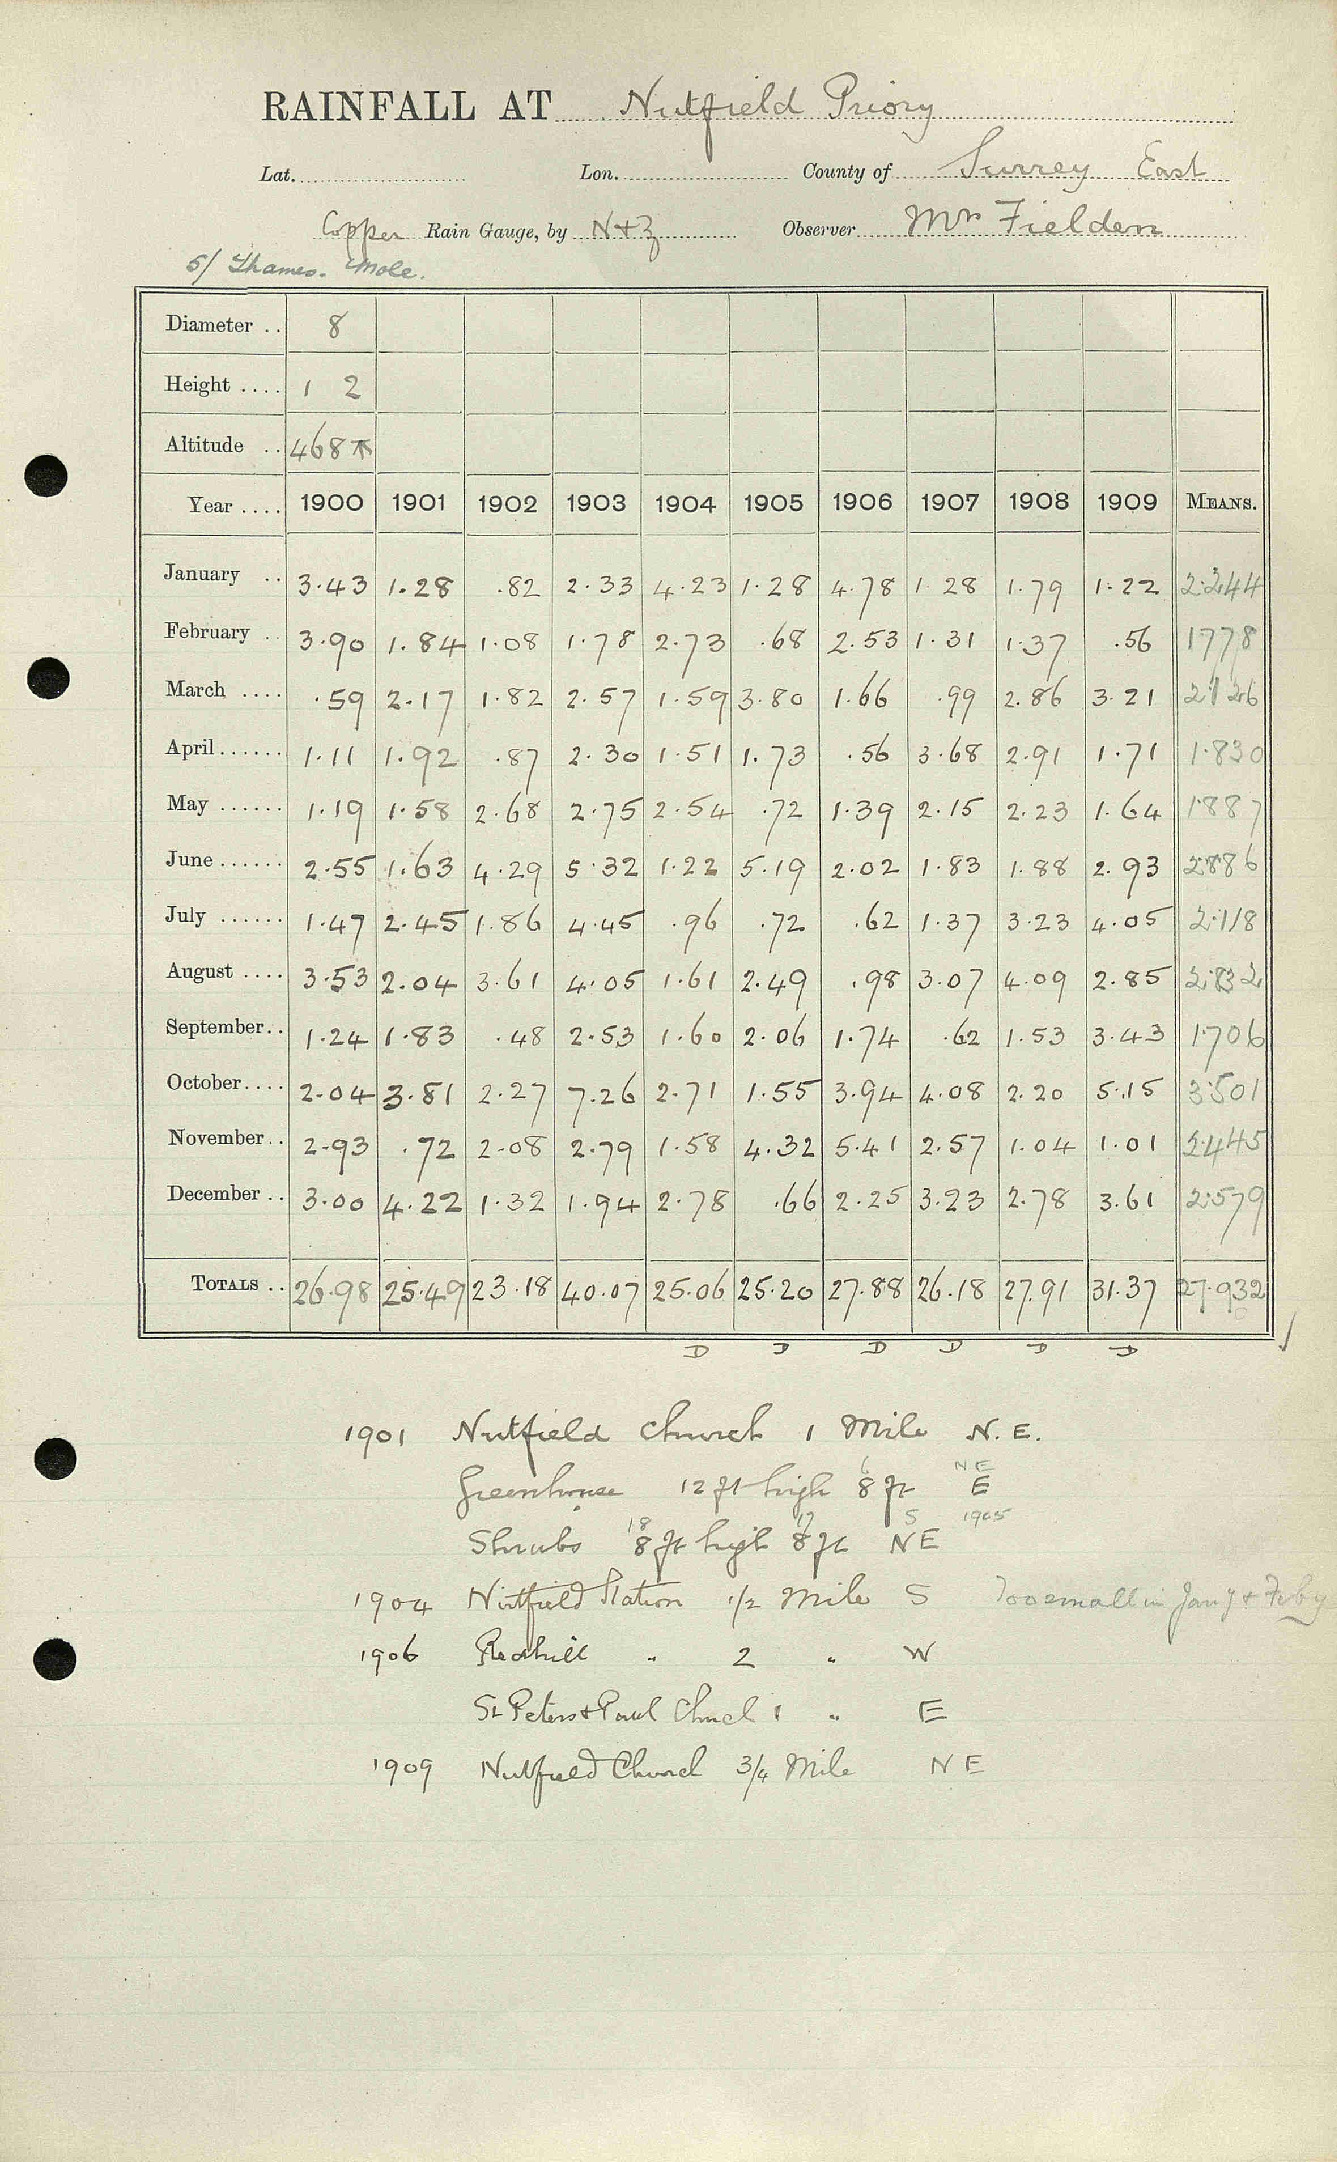 RAINFALL AT Nutfield Priory
Lat. Lon. County of Surrey East
Copper Rain Gauge, by N+Z Observer Mrs Fielden
5/ Thames. Mole.
Diameter .. 8
Height .... 1 2
Altitude .. 468
Year .... 1900 1901 1902 1903 1904 1905 1906 1907 1908 1909 MEANS.
January .. 3.43 1.28 .82 2.33 4.23 1.28 4.78 1.28 1.79 1.22 2.244
February .. 3.90 1.84 1.08 1.78 2.73 .68 2.53 1.31 1.37 .56 1778
March .... .59 2.17 1.82 2.57 1.59 3.80 1.66 .99 2.86 3.21 2.126
April ...... 1.11 1.92 .87 2.30 1.51 1.73 .56 3.68 2.91 1.71 1.830
May ...... 1.19 1.58 2.68 2.75 2.54 .72 1.39 2.15 2.23 1.64 1.887
June ...... 2.55 1.63 4.29 5.32 1.22 5.19 2.02 1.83 1.88 2.93 2.886
July ...... 1.47 2.45 1.86 4.45 .96 .72 .62 1.37 3.23 4.05 2.118
August .... 3.53 2.04 3.61 4.05 1.61 2.49 .98 3.07 4.09 2.85 2.832
September.. 1.24 1.83 .48 2.53 1.60 2.06 1.74 .62 1.53 3.43 1.706
October.... 2.04 3.81 2.27 7.26 2.71 1.55 3.94 4.08 2.20 5.15 3.501
November.. 2.93 .72 2.08 2.79 1.58 4.32 5.41 2.57 1.04 1.01 2.445
December .. 3.00 4.22 1.32 1.94 2.78 .66 2.25 3.23 2.78 3.61 2.579
TOTALS .. 26.98 25.49 23.18 40.07 25.06 25.20 27.88 26.18 27.91 31.37 27.932
D D D D D D
1901 Nutfield Church 1 Mile N.E.
6 NE
Greenhouse 12 ft high 8 ft E
18 17 S 1905
Shrubs 8 ft high 8 ft NE
1904 Nutfield Station 1/2 Mile S Too small in Jany & Feby
1906 Redhill " 2 " W
St Peters + Paul Church 1 " E
1909 Nutfield Church 3/4 Mile NE